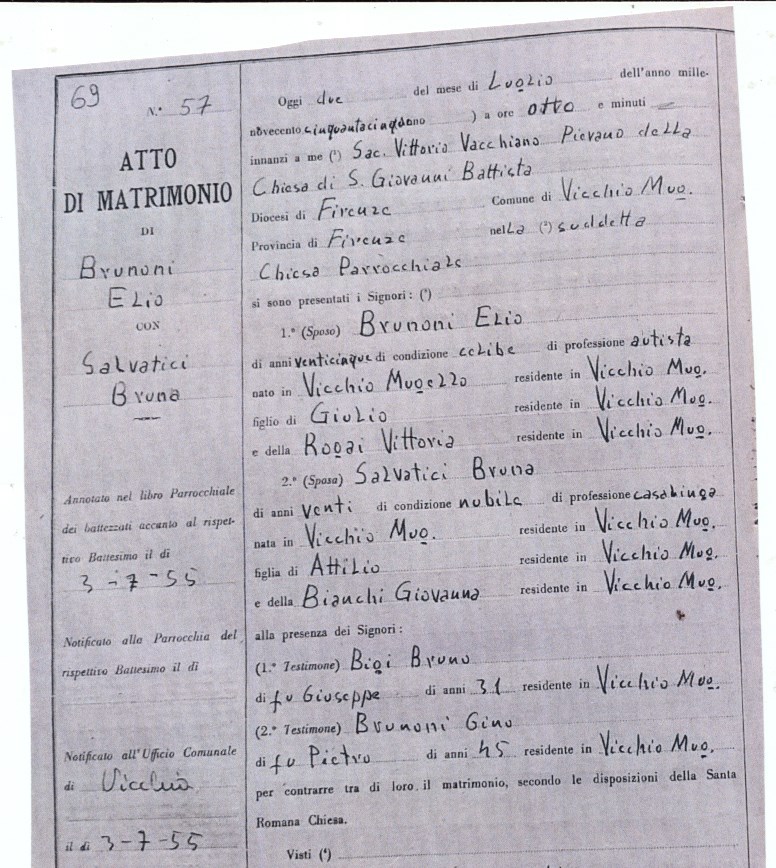 69
N.° 57
ATTO
DI MATRIMONIO
DI
Brunoni
Elio
CON
Salvatici
Bruna
Annotato nel libro Parrocchiale
dei battezzati accanto al rispet-
tivo Battesimo il dì
3-7-55
Notificato alla Parrocchia del
rispettivo Battesimo il dì
Notificato all'Ufficio Comunale
di Vicchio
il dì 3-7-55
Oggi due del mese di Luglio dell'anno mille-
novecento cinquantacinque ) a ore otto e minuti —
innanzi a me (¹) Sac. Vittorio Vacchiano Pievano della
Chiesa di S. Giovanni Battista
Diocesi di Firenze Comune di Vicchio Mug.
Provincia di Firenze nella (²) suddetta
Chiesa Parrocchiale
si sono presentati i Signori: (³)
1.° (Sposo) Brunoni Elio
di anni venticinque di condizione celibe di professione autista
nato in Vicchio Mugello residente in Vicchio Mug.
figlio di Giulio residente in Vicchio Mug.
e della Rogai Vittoria residente in Vicchio Mug.
2.° (Sposa) Salvatici Bruna
di anni venti di condizione nubile di professione casalinga
nata in Vicchio Mug. residente in Vicchio Mug.
figlia di Attilio residente in Vicchio Mug.
e della Bianchi Giovanna residente in Vicchio Mug.
alla presenza dei Signori:
(1.° Testimone) Bigi Bruno
di fu Giuseppe di anni 31 residente in Vicchio Mug.
(2.° Testimone) Brunoni Gino
di fu Pietro di anni 45 residente in Vicchio Mug.
per contrarre tra di loro il matrimonio, secondo le disposizioni della Santa
Romana Chiesa.
Visti (⁴)